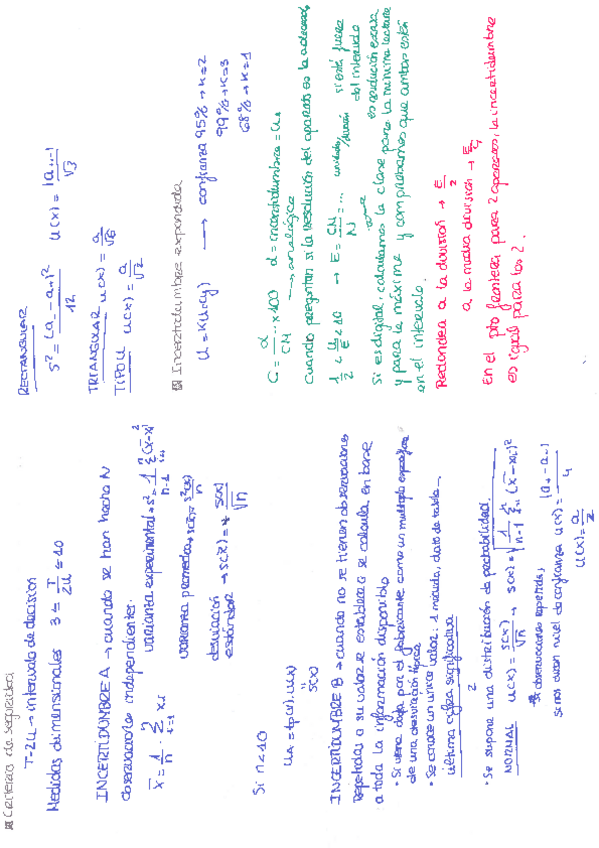 Criterios de seguridad
T-2U → intervalo de decisión
Medidas dimensionales 3 ≤ T/2U ≤ 10
INCERTIDUMBRE A → cuando se han hecho N
observaciones independientes.
x̄ = 1/n Σ xi
varianza experimental → s² = 1/(n-1) Σ (x̄-xi)²
varianza promedio → s(x̄) = s²(x)/n
desviación
estándar → s(x̄) = s(x)/√n
Si n<10
INCERTIDUMBRE B → cuando no se tienen observaciones
Repetidas a su valor se establece o se calcula en base
a toda la información disponible
• Si viene dada por el fabricante como un multiplo específico
de una desviación típica
• Se conoce un unico valor: 1 medida, dato de tabla
última cifra significativa
2
• Se supone una distribución de probabilidad.
NORMAL u(x) = s(x)/√n → s(x) = √(1/(n-1) Σ (x̄-xi)²)
observaciones repetidas,
si nos dicen nivel de confianza u(x) = |a+ - a-|/4
u(x) = a/2
RECTANGULAR
s² = (a- - a+)²/12 u(x) = |a...|/√3
TRIANGULAR u(x) = a/√6
TIPO U u(x) = a/√2
Incertidumbre expandida
U = K u(y) → confianza 95% → k=2
99% → k=3
68% → k=1
C = α/CM · x100 α = incertidumbre = UA
→ analógica
cuando preguntan si la resolución del aparato es la adecuada,
1/2 < U/E < 10 → E = CM/N = ... unidades/división si está fuera
del intervalo
Si es digital, calculamos la clase para la mínima lectura
y para la máxima y comprobamos que ambas estén
en el intervalo.
Redondea a la división → E/2
a la media división → E/4
En el pto frontera para 2 aparatos, la incertidumbre
es igual para los 2.